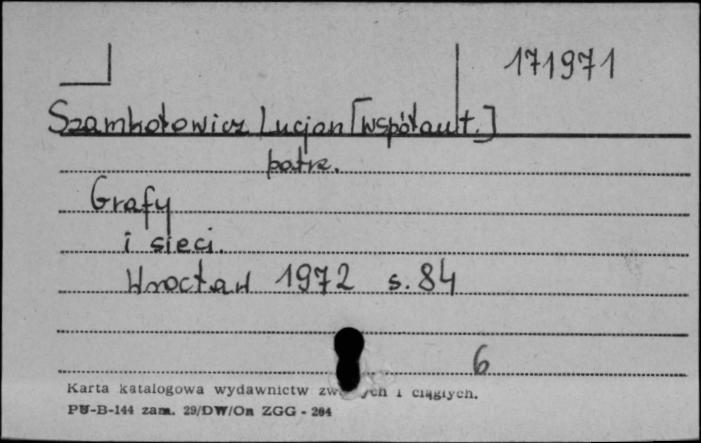 171971
Szamkołowicz Lucjan [współaut.]
patrz.
Grafy
i sieci.
Wrocław 1972 s. 84
6
Karta katalogowa wydawnictw i ciągłych.
PU-B-144 zam. 29/DW/On ZGG - 264